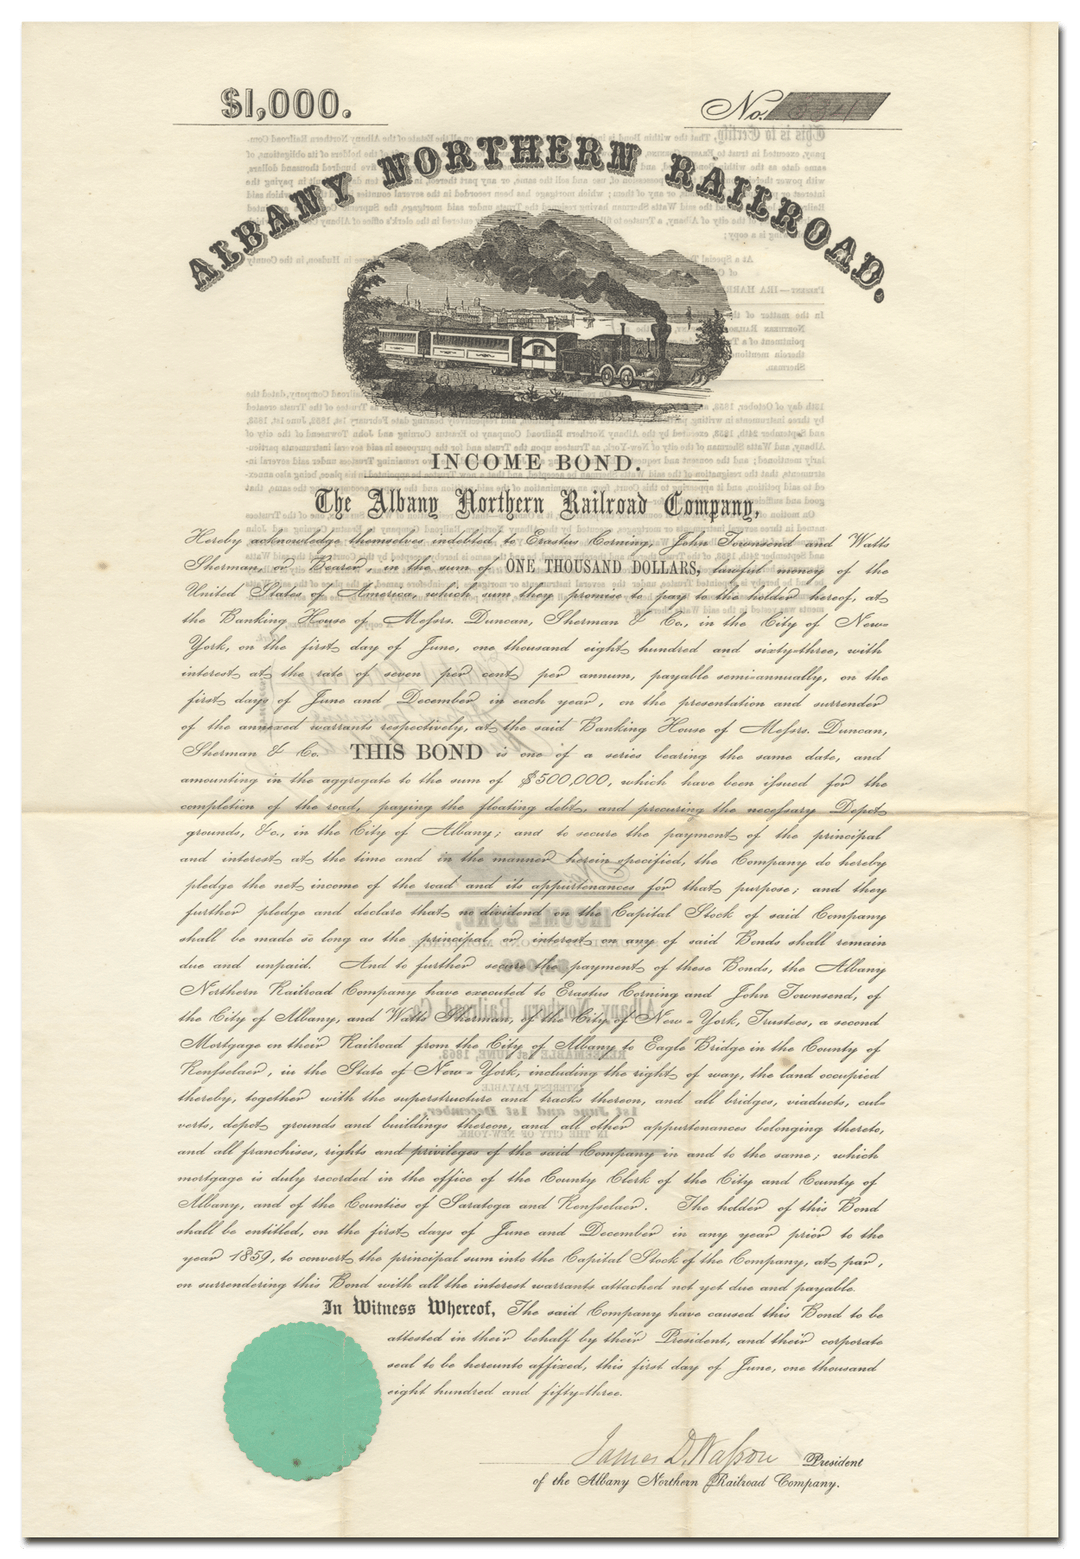 $1,000.
No. 334
ALBANY NORTHERN RAILROAD.
INCOME BOND.
The Albany Northern Railroad Company,
Hereby acknowledge themselves indebted to Erastus Corning, John Townsend and Watts
Sherman, or Bearer, in the sum of ONE THOUSAND DOLLARS, lawful money of the
United States of America, which sum they promise to pay to the holder hereof, at
the Banking House of Messrs. Duncan, Sherman & Co., in the City of New-
York, on the first day of June, one thousand eight hundred and sixty-three, with
interest at the rate of seven per cent per annum, payable semi-annually, on the
first days of June and December in each year, on the presentation and surrender
of the annexed warrants respectively, at the said Banking House of Messrs. Duncan,
Sherman & Co. THIS BOND is one of a series bearing the same date, and
amounting in the aggregate to the sum of $500,000, which have been issued for the
completion of the road, paying the floating debt, and procuring the necessary Depot
grounds, &c., in the City of Albany; and to secure the payment of the principal
and interest at the time and in the manner herein specified, the Company do hereby
pledge the net income of the road and its appurtenances for that purpose; and they
further pledge and declare that no dividend on the Capital Stock of said Company
shall be made so long as the principal or interest on any of said Bonds shall remain
due and unpaid. And to further secure the payment of these Bonds, the Albany
Northern Railroad Company have executed to Erastus Corning and John Townsend, of
the City of Albany, and Watts Sherman, of the City of New-York, Trustees, a second
Mortgage on their Railroad from the City of Albany to Eagle Bridge in the County of
Rensselaer, in the State of New-York, including the right of way, the land occupied
thereby, together with the superstructure and tracks thereon, and all bridges, viaducts, cul-
verts, depot grounds and buildings thereon, and all other appurtenances belonging thereto,
and all franchises, rights and privileges of the said Company in and to the same; which
mortgage is duly recorded in the office of the County Clerk of the City and County of
Albany, and of the Counties of Saratoga and Rensselaer. The holder of this Bond
shall be entitled, on the first days of June and December in any year prior to the
year 1859, to convert the principal sum into the Capital Stock of the Company, at par,
on surrendering this Bond with all the interest warrants attached not yet due and payable.
In Witness Whereof, The said Company have caused this Bond to be
attested in their behalf by their President, and their corporate
seal to be hereunto affixed, this first day of June, one thousand
eight hundred and fifty-three.
James D. Wasson President
of the Albany Northern Railroad Company.